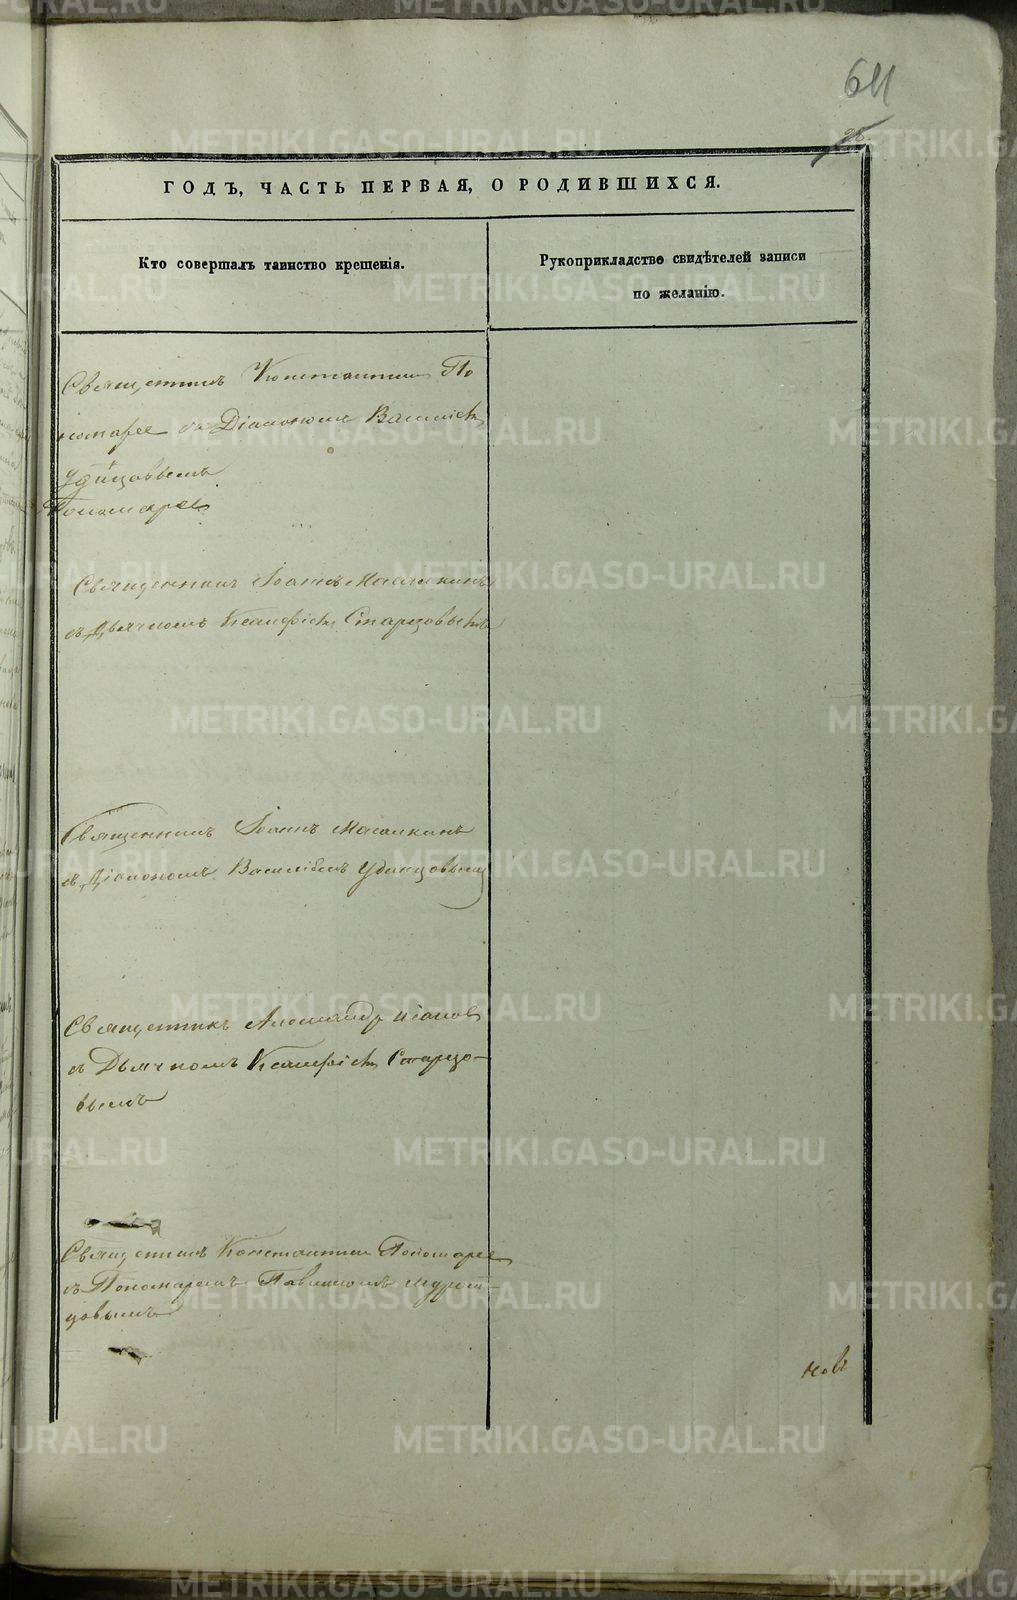 611
ГОДЪ, ЧАСТЬ ПЕРВАЯ, О РОДИВШИХСЯ.
Кто совершалъ таинство крещенія.
Рукоприкладство свидѣтелей записи
по желанію.
Священникъ Константинъ По
номаре съ Діакономъ Василіем
Удинцовымъ
Пономарев
Священникъ Іоаннъ Масалкинъ
съ Дьячкомъ Старцовымъ
Священникъ Іоаннъ Масалкинъ
съ Діакономъ Василіемъ Удинцовымъ
Священникъ Александр
съ Дьячкомъ Старцо-
вымъ
Священникъ Константин Пономарев
съ Пономаремъ
цовымъ
новъ
METRIKI.GASO-URAL.RU